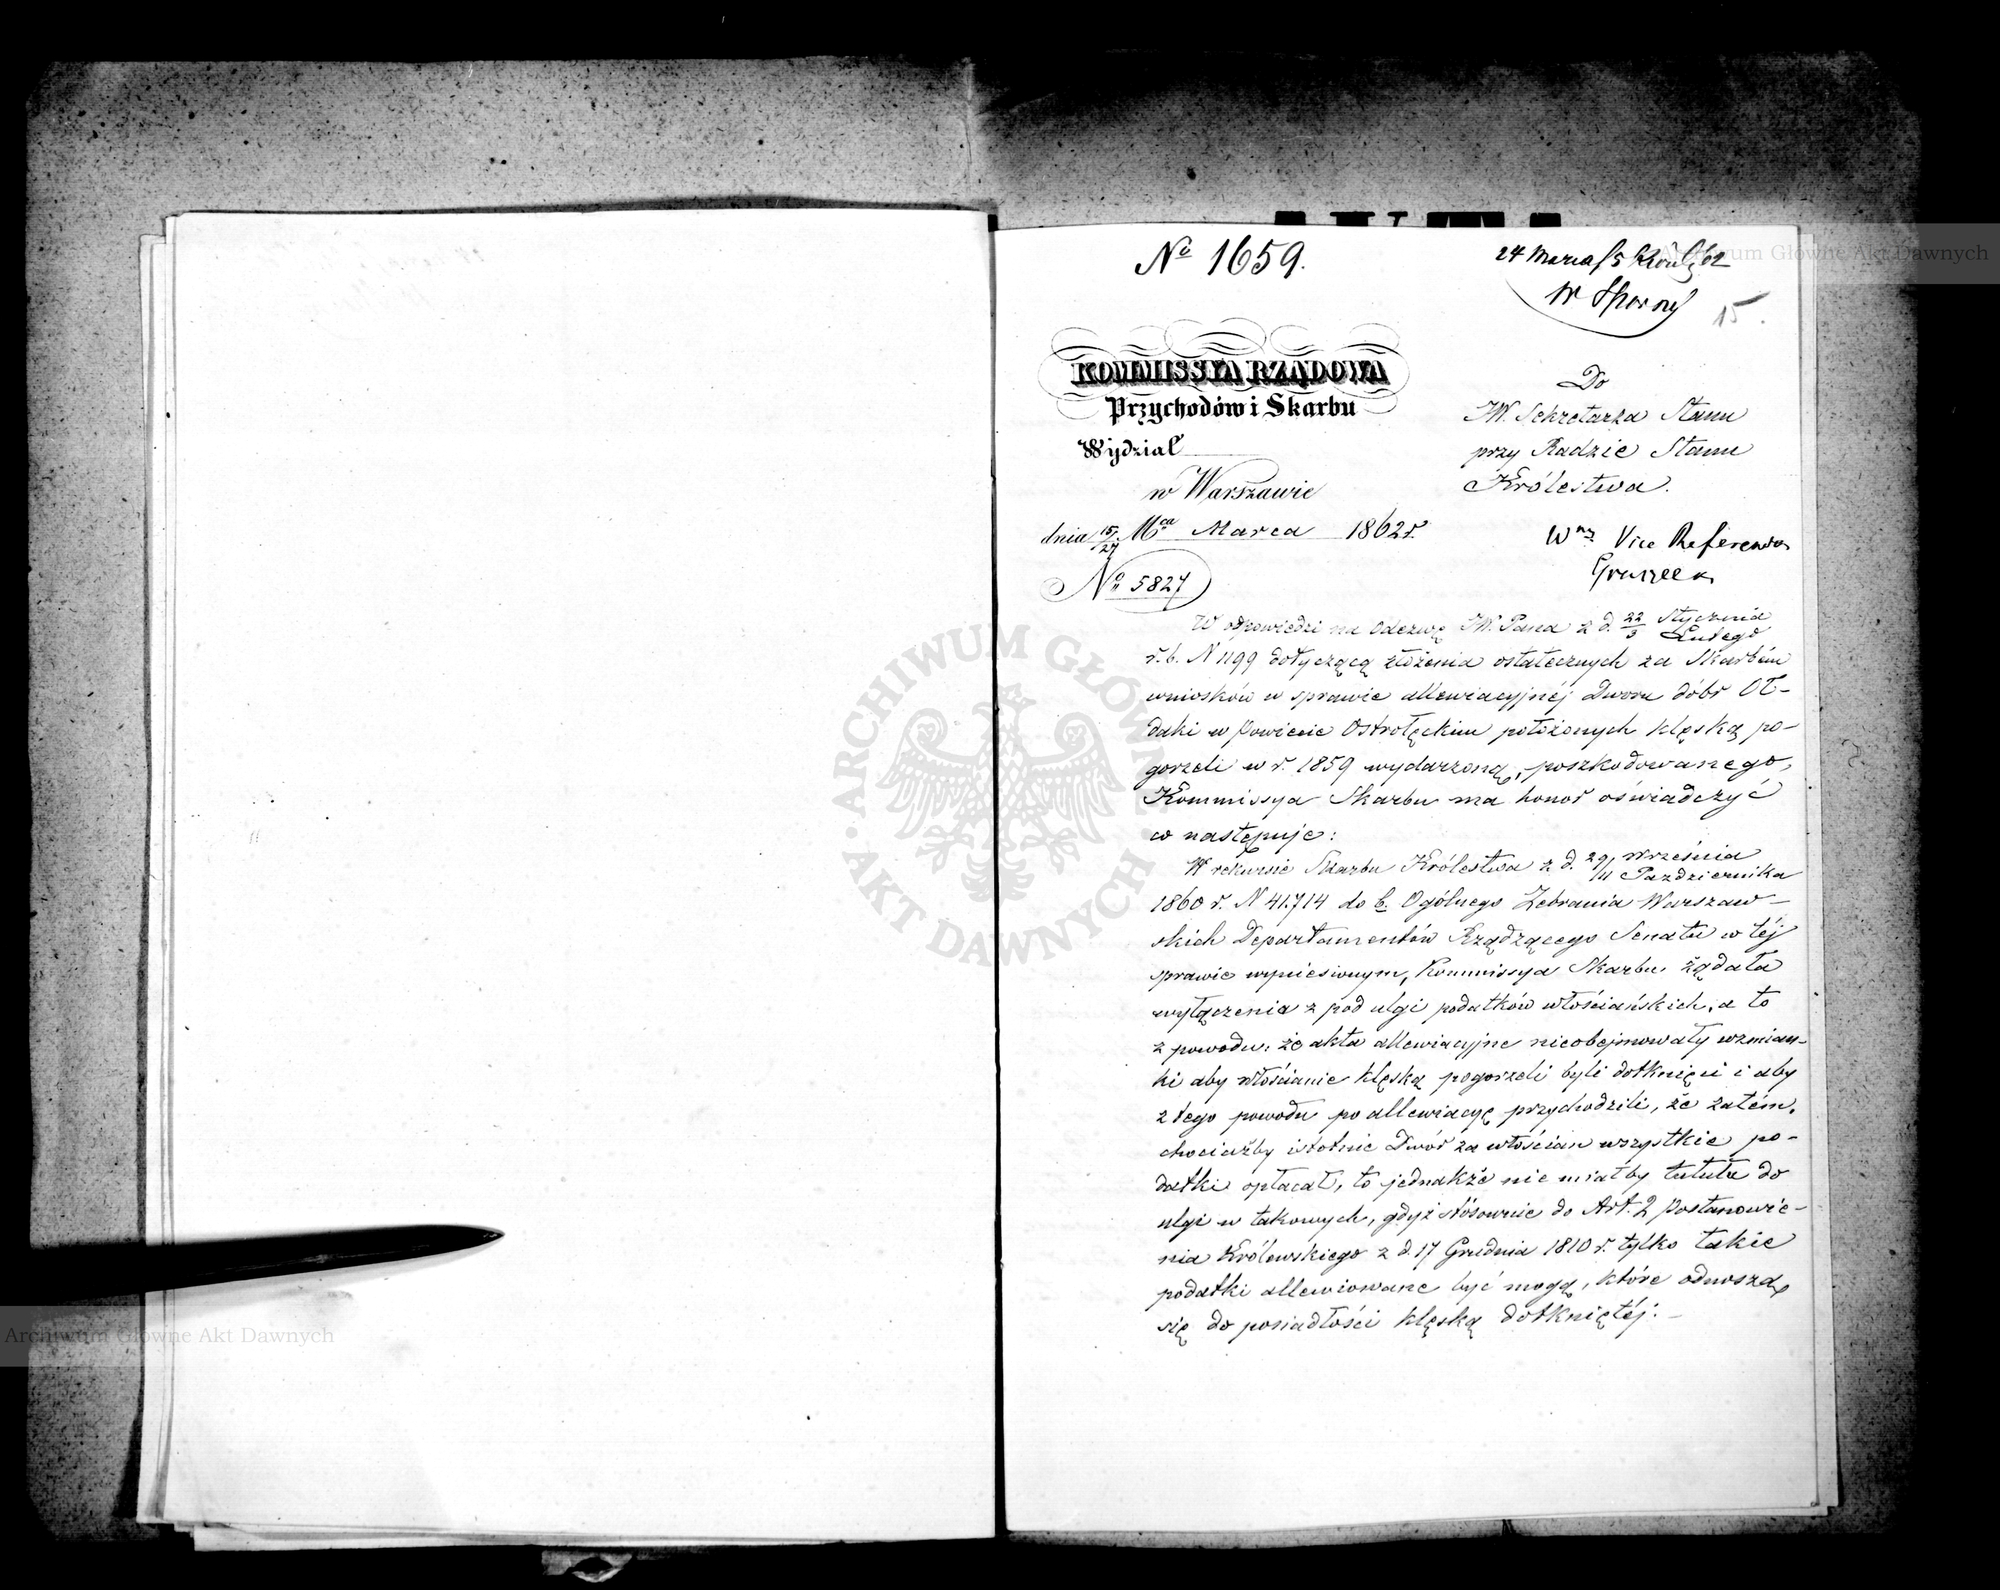 No 1659.
24 Marca/5 Kwiet. 62
W Sporny
15.
KOMMISSYA RZĄDOWA
Przychodów i Skarbu
Wydział
w Warszawie
dnia 15/27 Mca Marca 1862 r.
No 5827
Do
JW. Sekretarza Stanu
przy Radzie Stanu
Królestwa.
Wny Vice Referendarz
W odpowiedzi na Odezwę JW. Pana z d. 22/3 Stycznia/Lutego
r. b. N 1199 dotyczącą złożenia ostatecznych za Skarbem
wniosków w sprawie allewiacyjnéj Dworu dóbr Oł-
daki w Powiecie Ostrołęckim położonych klęską po-
gorzeli w r. 1859 wydarzoną, poszkodowanego,
Kommissya Skarbu ma honor oświadczyć
co następuje:
W rekursie Skarbu Królestwa z d. 29/11 Września/Października
1860 r. N 41.714 do b. Ogólnego Zebrania Warszaw-
skich Departamentów Rządzącego Senatu w téj
sprawie wyniesionym, Kommissya Skarbu żądała
wyłączenia z pod ulgi podatków włościańskich, a to
z powodu, że akta allewiacyjne nieobejmowały wzmian-
ki aby włościanie klęską pogorzeli byli dotknięci i aby
z tego powodu po allewiacyę przychodzili, że zatém,
chociażby istotnie Dwór za włościan wszystkie po-
datki opłacał, to jednakże nie miałby tytułu do
ulgi w takowych, gdyż stósownie do Art. 2 Postanowie-
nia Królewskiego z d. 17 Grudnia 1810 r. tylko takie
podatki allewiowane być mogą, które odnoszą
się do posiadłości klęską dotkniętéj: –
ARCHIWUM GŁÓWNE AKT DAWNYCH
Archiwum Główne Akt Dawnych
Archiwum Główne Akt Dawnych